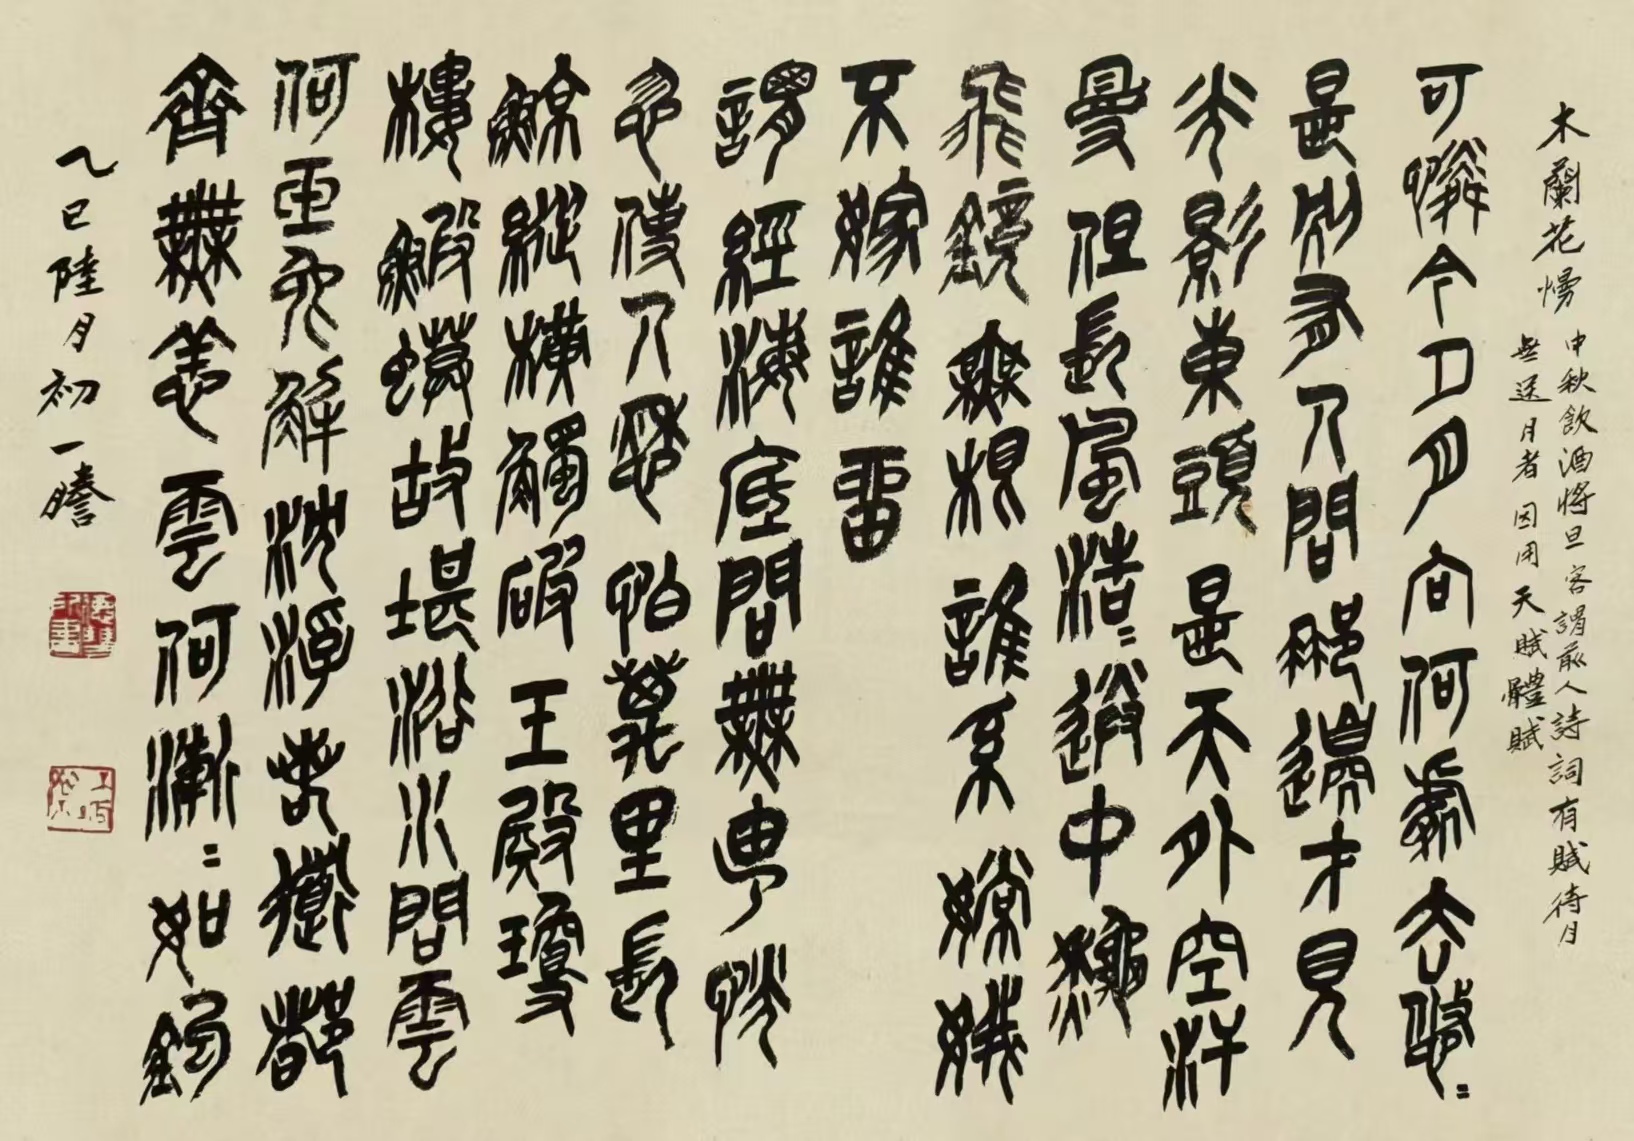 木蘭花慢 中秋飲酒將旦客謂前人詩詞有賦待月
無送月者因用天賦體賦
可憐今夕月向何處去悠〻
是別有人間那邊才見
光影東頭是天外空汗
曼但長風浩〻送中秋
飛鏡無根誰系嫦娥
不嫁誰留
謂經海底問無由恍
忽使人愁怕萬里長
鯨縱橫觸破玉殿瓊
樓鰕蟆故堪浴水問雲
何玉兔解沈浮若道都
齊無恙雲何漸〻如鉤
乙巳陸月初一謄